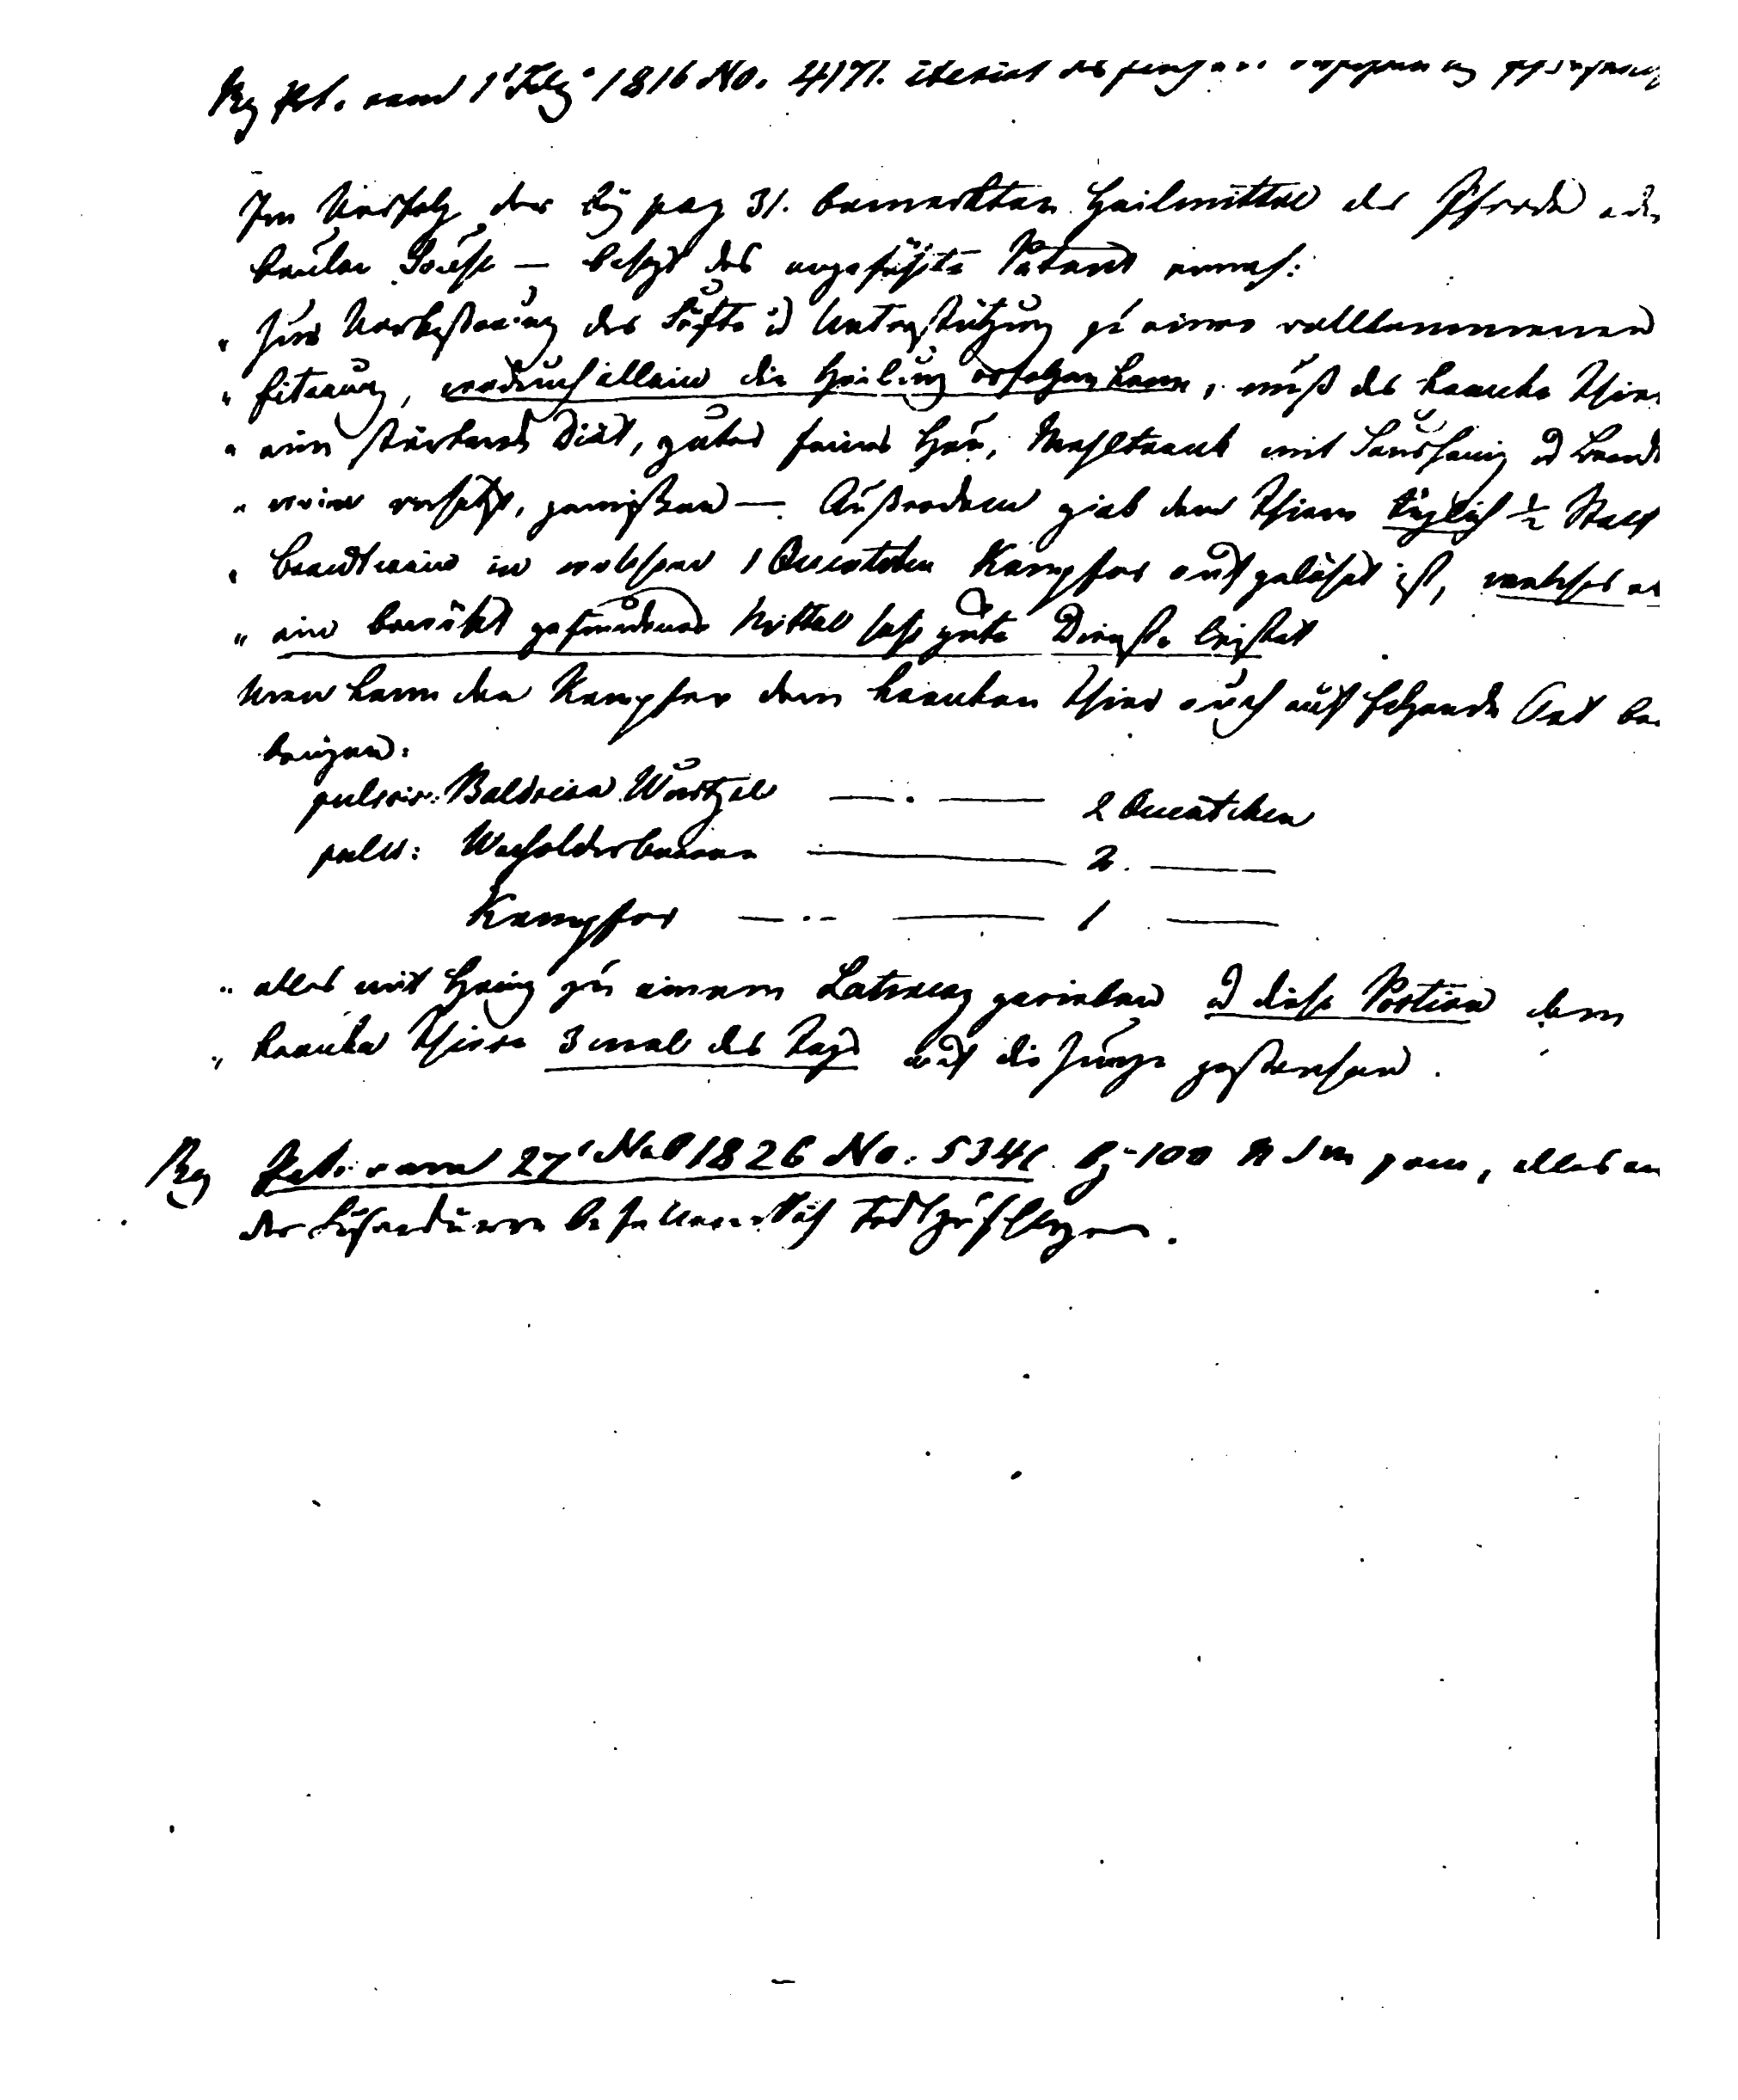 Rg Pt. vom 1t Febr 1816 No. 4171.
Im Verfolg der bey pag 31. bemerkten Heilmittel der Pferde oder
beulen Seuche — besagt das angeführte Patent annoch:
„ Zur Verbesserung der Säfte u Unterstützung zu einer vollkommenen
„ Eiterung, wodurch allein die Heilung erfolgen kann, muß das kranke Thier
„ ein stärkende Diät, gutes feines Heu, Mehltrank mit Honig u Brand
„ wein versetzt, genießen — Außerdem gieb dem Thiere täglich ½ Maaß
„ Brandtwein in welchem 1 Quentchen Kampfer aufgelöset ist, welches als
„ ein bewährt gefundenes Mittel sehr gute Dienste leistet
Man kann den Kampfer dem kranken Thier auch auf folgende Art bey
bringen:
pulver: Baldrian Wurtzel —.— 2 Quentchen
pulv: Wacholderbeeren —— 2. ——
Kampfer —..— 1 ——
„ alles mit Honig zu einem Latwerg gerieben u diese Portion dem
„ kranken Thiere 3 mal des Tags auf die Zunge gestrichen.
Rg Pat. vom 27t 1826 No. 5341. 100 alles an
der befallene Vieh Todtzuschlagen.